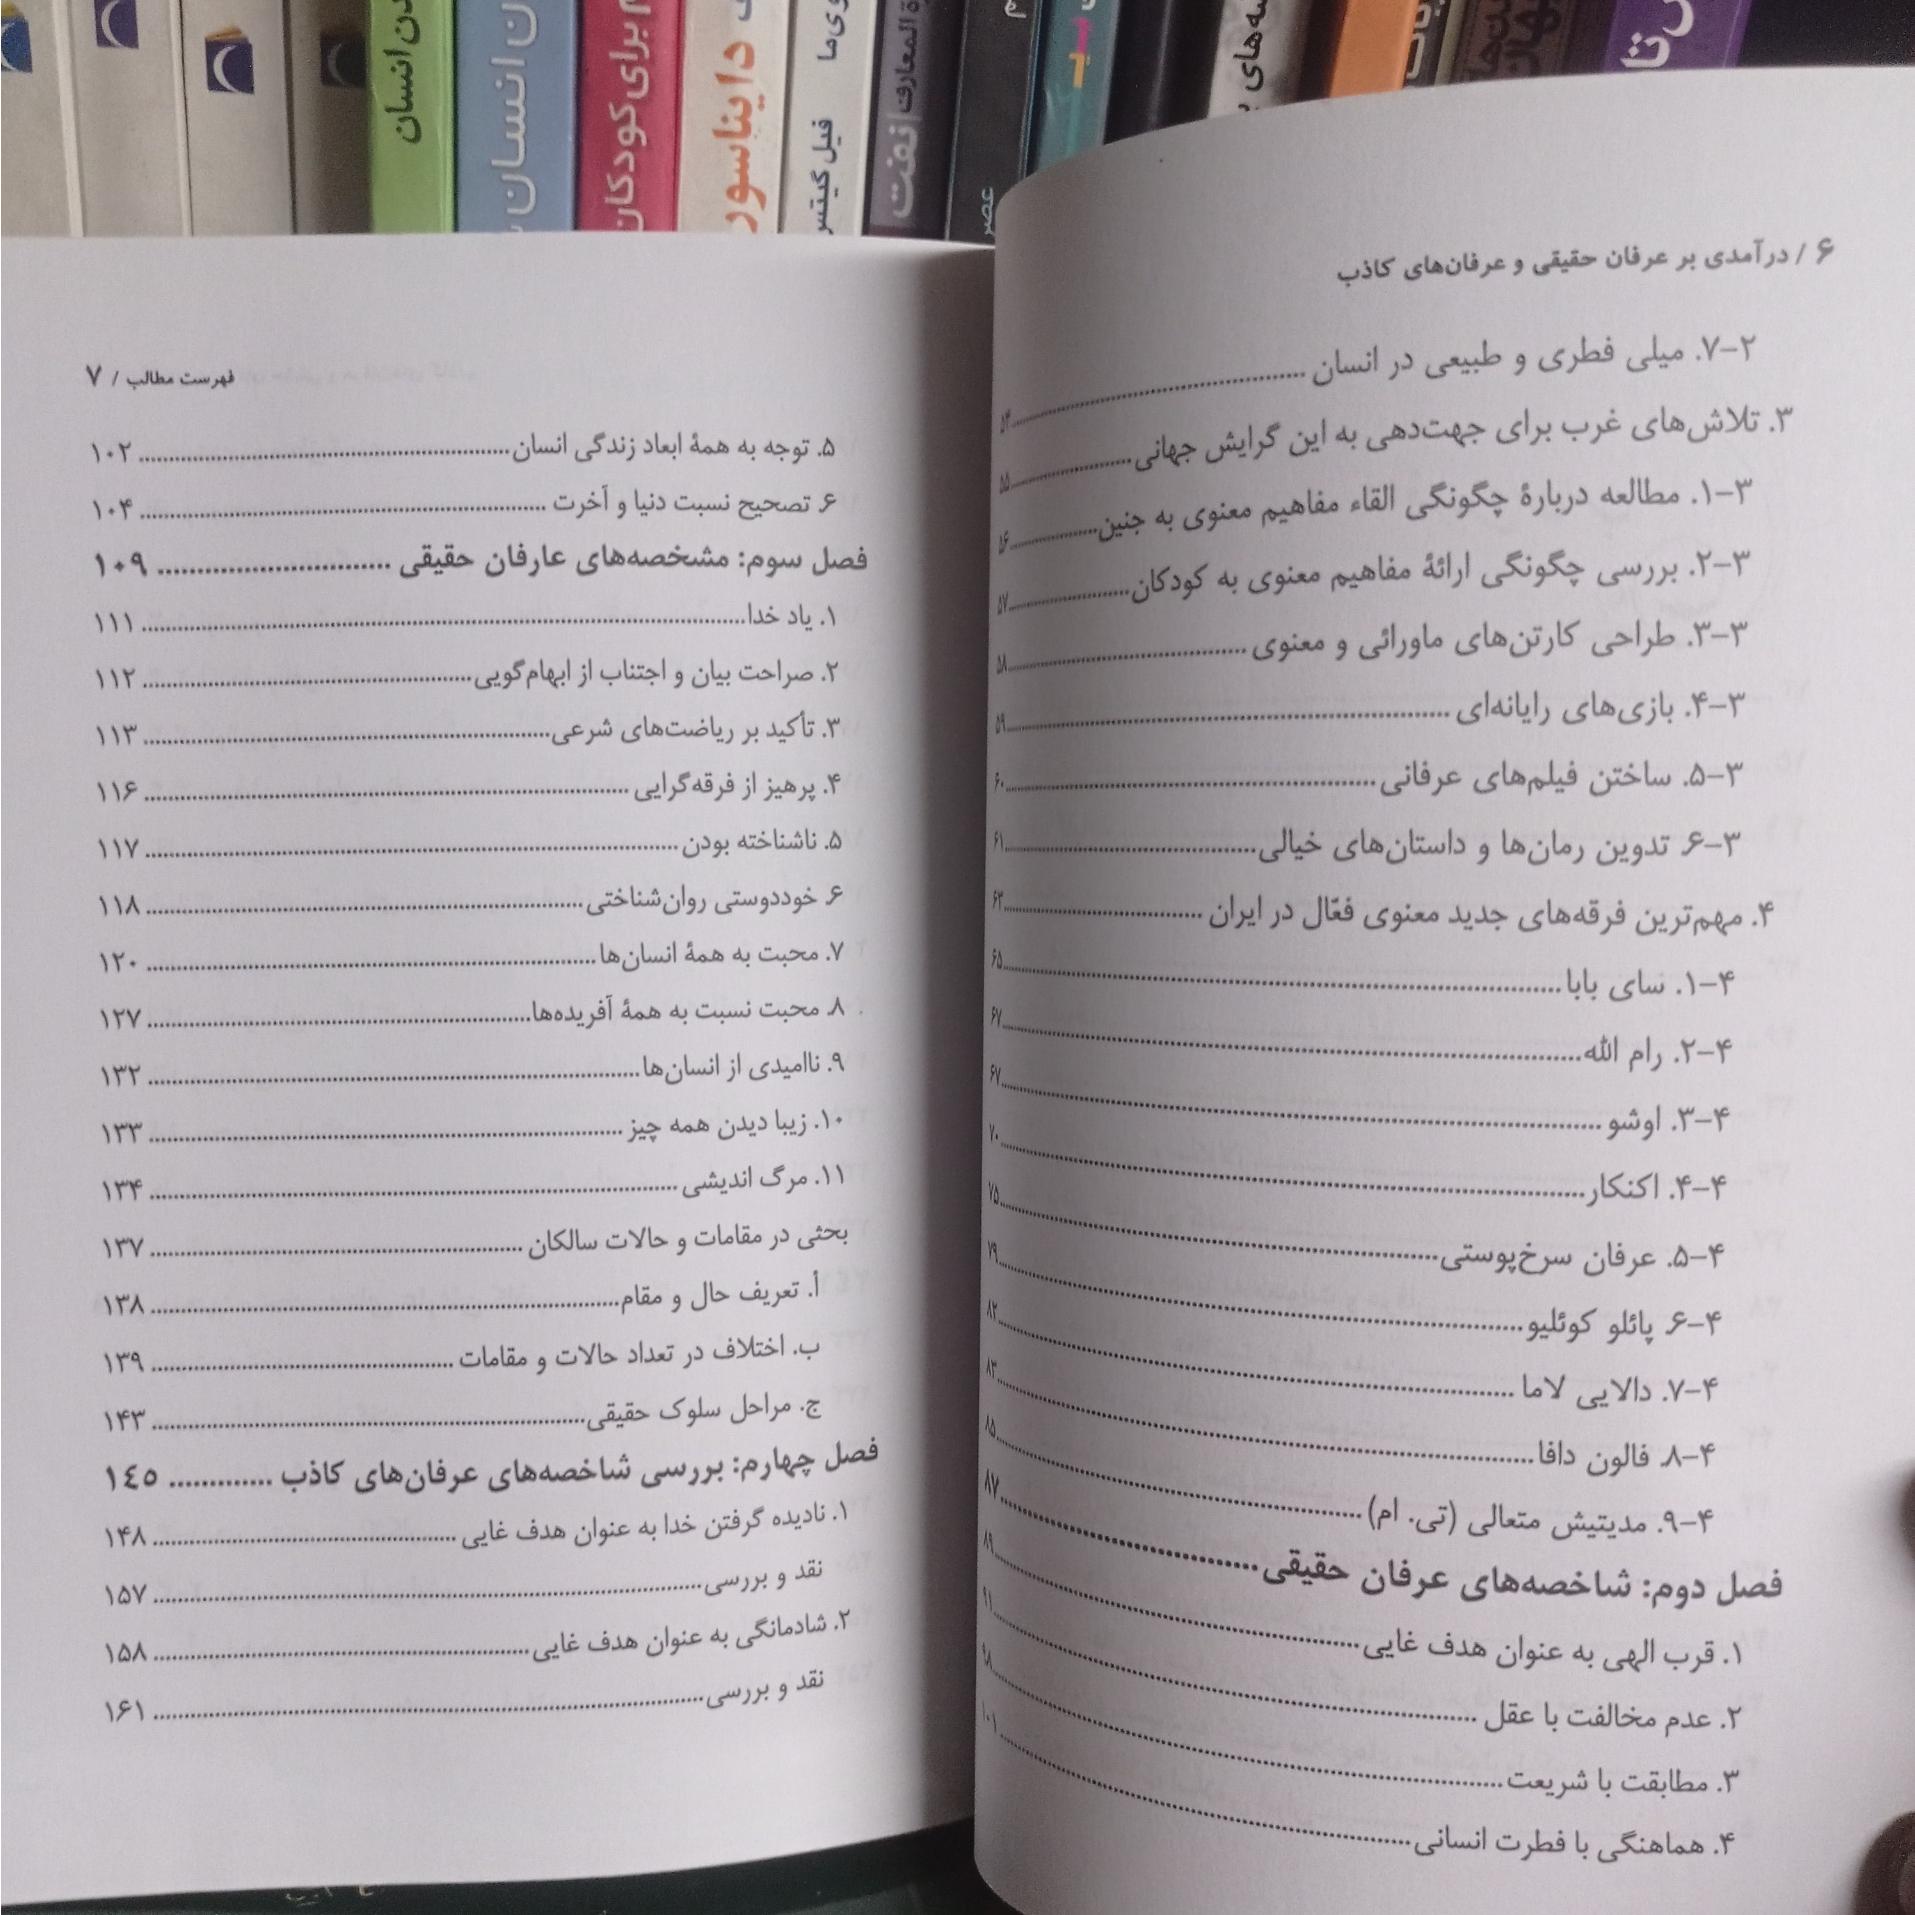 ن انسان
ن انسان
م برای کودکان
دایناسور
وی‌ما
فیل گیتس
ة المعارف نفت
عصر
۶ / درآمدی بر عرفان حقیقی و عرفان‌های کاذب
۲–۷. میلی فطری و طبیعی در انسان ........ ۵۴
۳. تلاش‌های غرب برای جهت‌دهی به این گرایش جهانی ........ ۵۵
۳–۱. مطالعه دربارهٔ چگونگی القاء مفاهیم معنوی به جنین ........ ۵۶
۳–۲. بررسی چگونگی ارائهٔ مفاهیم معنوی به کودکان ........ ۵۷
۳–۳. طراحی کارتن‌های ماورائی و معنوی ........ ۵۸
۳–۴. بازی‌های رایانه‌ای ........ ۵۹
۳–۵. ساختن فیلم‌های عرفانی ........ ۶۰
۳–۶. تدوین رمان‌ها و داستان‌های خیالی ........ ۶۱
۴. مهم‌ترین فرقه‌های جدید معنوی فعّال در ایران ........ ۶۳
۴–۱. سای بابا ........ ۶۵
۴–۲. رام الله ........ ۶۷
۴–۳. اوشو ........ ۶۷
۴–۴. اکنکار ........ ۷۰
۴–۵. عرفان سرخ‌پوستی ........ ۷۵
۴–۶. پائلو کوئلیو ........ ۷۹
۴–۷. دالایی لاما ........ ۸۲
۴–۸. فالون دافا ........ ۸۳
۴–۹. مدیتیش متعالی (تی. ام) ........ ۸۵
فصل دوم: شاخصه‌های عرفان حقیقی ........ ۸۷
۱. قرب الهی به عنوان هدف غایی ........ ۸۹
۲. عدم مخالفت با عقل ........ ۹۱
۳. مطابقت با شریعت ........ ۹۸
۴. هماهنگی با فطرت انسانی ........ ۱۰۱
فهرست مطالب / ۷
۵. توجه به همهٔ ابعاد زندگی انسان ........ ۱۰۲
۶. تصحیح نسبت دنیا و آخرت ........ ۱۰۴
فصل سوم: مشخصه‌های عارفان حقیقی ........ ۱۰۹
۱. یاد خدا ........ ۱۱۱
۲. صراحت بیان و اجتناب از ابهام‌گویی ........ ۱۱۲
۳. تأکید بر ریاضت‌های شرعی ........ ۱۱۳
۴. پرهیز از فرقه‌گرایی ........ ۱۱۶
۵. ناشناخته بودن ........ ۱۱۷
۶. خوددوستی روان‌شناختی ........ ۱۱۸
۷. محبت به همهٔ انسان‌ها ........ ۱۲۰
۸. محبت نسبت به همهٔ آفریده‌ها ........ ۱۲۷
۹. ناامیدی از انسان‌ها ........ ۱۳۲
۱۰. زیبا دیدن همه چیز ........ ۱۳۳
۱۱. مرگ اندیشی ........ ۱۳۴
بحثی در مقامات و حالات سالکان ........ ۱۳۷
أ. تعریف حال و مقام ........ ۱۳۸
ب. اختلاف در تعداد حالات و مقامات ........ ۱۳۹
ج. مراحل سلوک حقیقی ........ ۱۴۳
فصل چهارم: بررسی شاخصه‌های عرفان‌های کاذب ........ ١٤٥
۱. نادیده گرفتن خدا به عنوان هدف غایی ........ ۱۴۸
نقد و بررسی ........ ۱۵۷
۲. شادمانگی به عنوان هدف غایی ........ ۱۵۸
نقد و بررسی ........ ۱۶۱